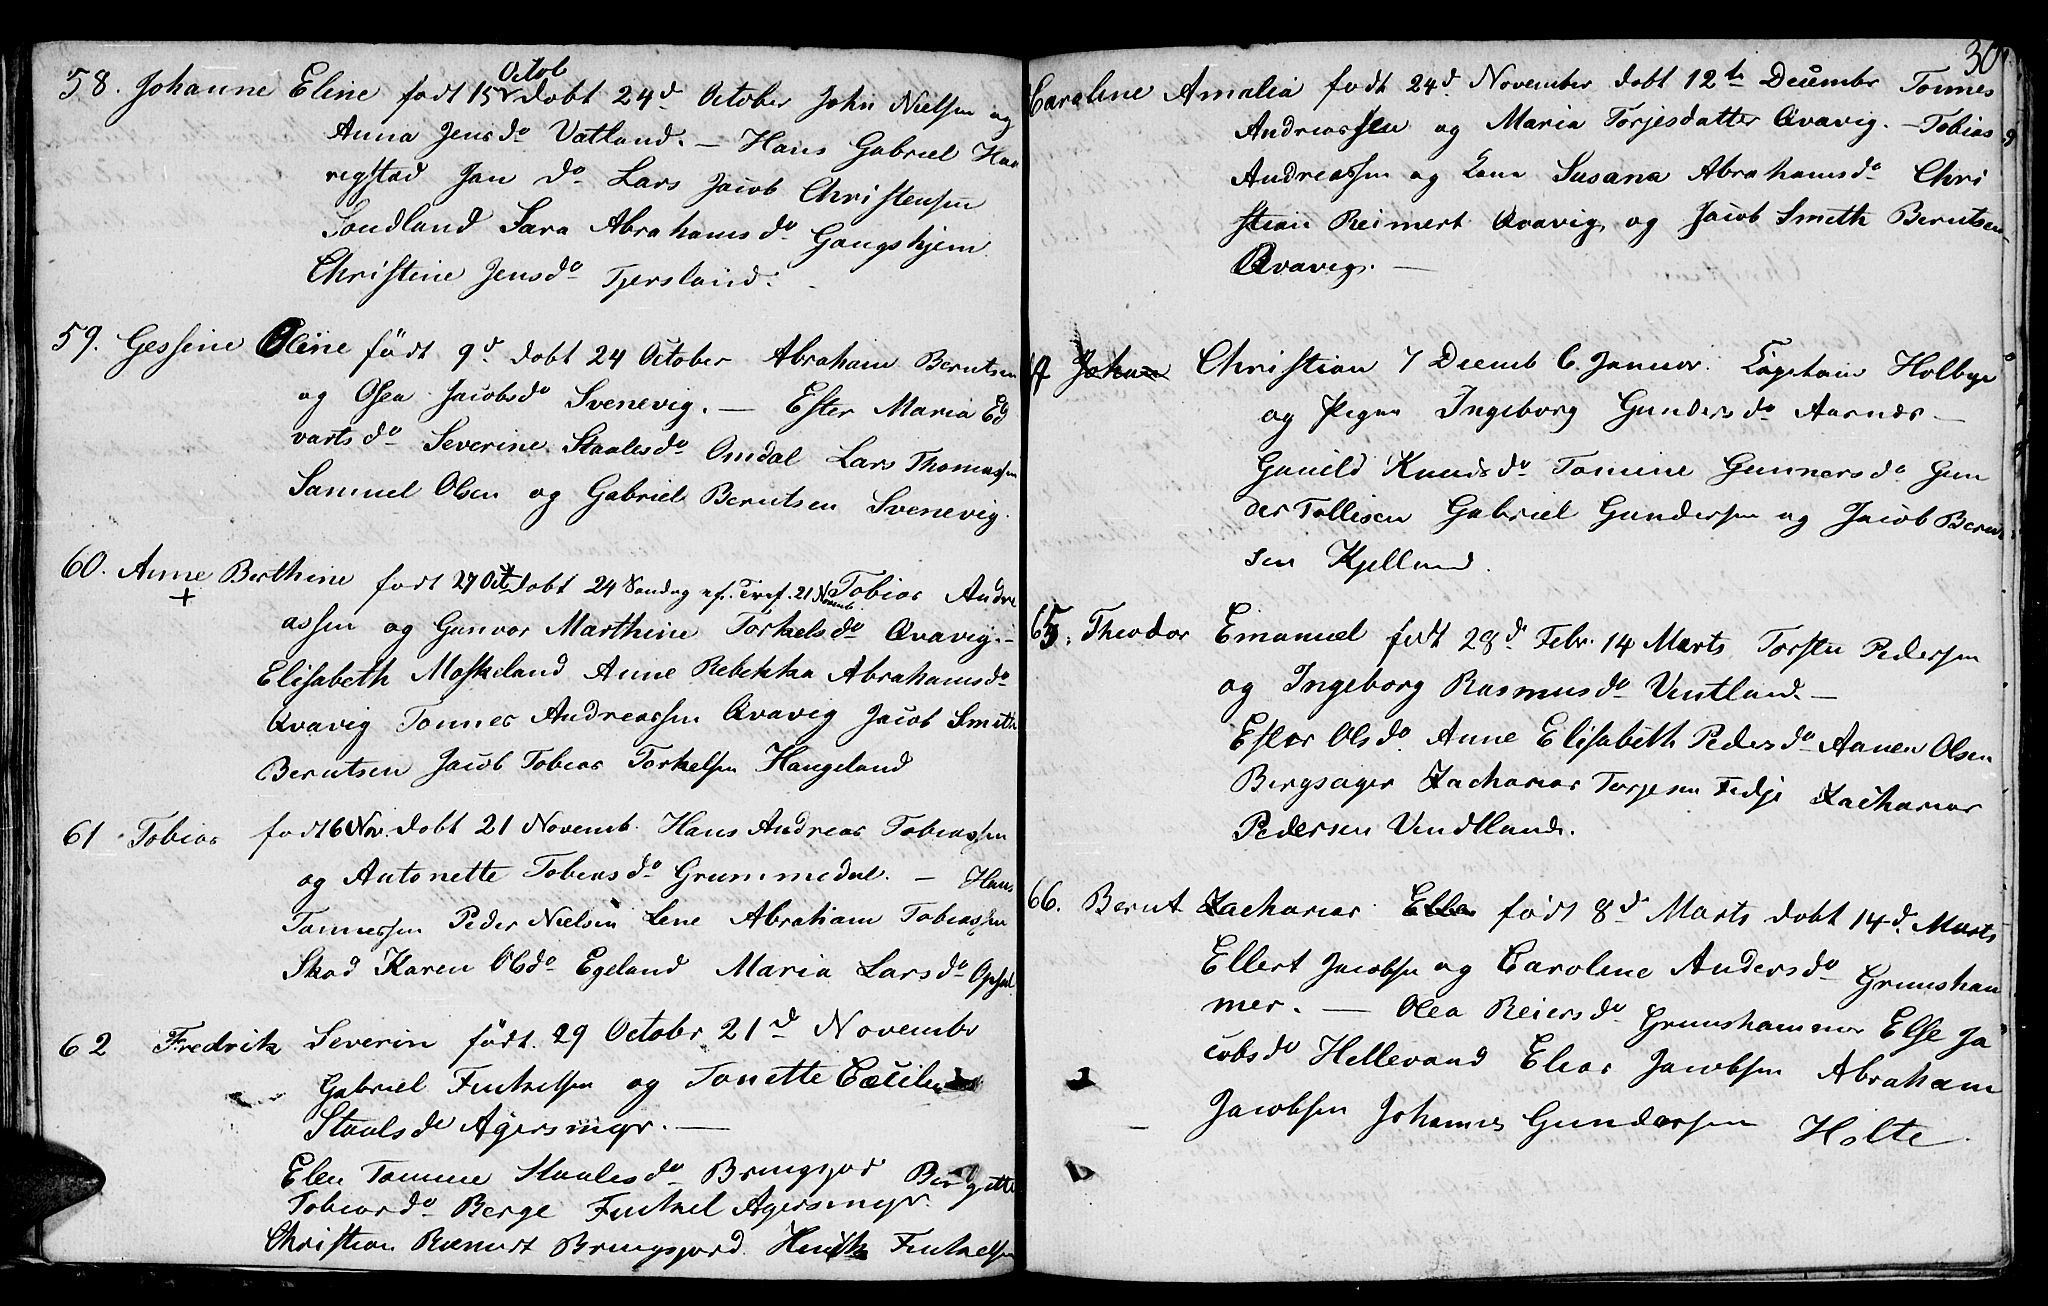 58. Johanne Eline født 15 Octob døbt 24d October John Nielsen og
Anna Jensdo Vatland. — Hans Gabriel Haa
regstad Jan do Lars Jacob Christensen
Sondland Sara Abrahamsdo Gangshjem.
Christine Jensdo Tjersland.
59. Gessine Oline født 9d døbt 24 October Abraham Berntsen
og Osea Jacobsdo Svenevig. — Ester Maria Ed
vartsdo Severine Staalesdo Omdal Lars Thomassen
Samuel Olsen og Gabriel Berntsen Svenevig.
60. Anne Berthine født 27 Oct døbt 24 Søndag ef. Tref. 21 Novemb Tobias Andre
+
assen og Gunvor Marthine Torkelsdo Qvavig. —
Elisabeth Moskeland Anne Rebekka Abrahamsdo
Qvavig Tønnes Andreassen Qvavig Jacob Smith
Berntsen Jacob Tobias Torkelsen Haugeland
61 Tobias født 6 Nov. døbt 21 Novemb. Hans Andreas Tobiassen
og Antonette Tobiasdo Grummedal. — Hans
Tønnessen Peder Nielsen Lene Abraham Tobiassen
Skod Karen Olsdo Egeland Maria Larsdo Opsal.
62 Fredrik Severin født 29 Octobr 21d Novembr
Gabriel Finkelsen og Tonette Cæcilie
Staalsd Agersmyr. —
Elen Tomine Staalesdo Bringsjor Bergette
Tobiasdo Berge Finkel Agersmyr.
Christian Reinert Bringsjord Henrik Finkelsen
30
Caroline Amalia født 24d November døbt 12te Decembr Tønnes
Andreassen og Maria Torjesdatter Qvavig. — Tobias
Andreassen og Lene Susana Abrahamsdo Chri
stian Reimert Qvavig og Jacob Smith Berntsen
Qvavig. —
Johan Christian 7 Decemb 6. Januar. Capitain Holbye
og Pigen Ingeborg Gundersdo Aarnes —
Gunild Knudsdo Tomine Gunnersdo Gun
der Tollisen Gabriel Gundersen og Jacob Bernt
sen Kjelland.
65. Theodor Emanuel født 28d Febr. 14 Marts Torsten Pedersen
og Ingeborg Rasmusdo Vintland. —
Ester Olsdo. Anne Elisabeth Pedersdo Aanen Olsen
Bergsager Zacharias Torjesen Fedje Zacharias
Pedersen Vindtland.
66. Bernt Zacharias Ellen født 8d Marts døbt 14d. Marts
Ellert Jacobsen og Caroline Andersdo Grunsham
mer. — Olea Reiersdo Grunshammer Else Ja
cobsdo Hellevand Elias Jacobsen Abraham
Jacobsen Johannes Gundersen Holte.